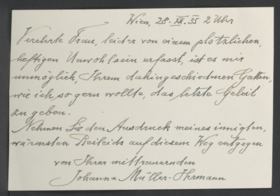 Wien, 28. XII. 35 2 Uhr
Verehrte Frau, leider von einem plötzlichen,
heftigen Unwohlsein erfasst, ist es mir
unmöglich, Ihrem dahingeschiedenen Gatten,
wie ich so gern wollte, das letzte Geleit
zu geben.
Nehmen Sie den Ausdruck meines innigsten,
wärmsten Beileids auf diesem Weg entgegen
von Ihrer mittrauernden
Johanna Müller-Hermann